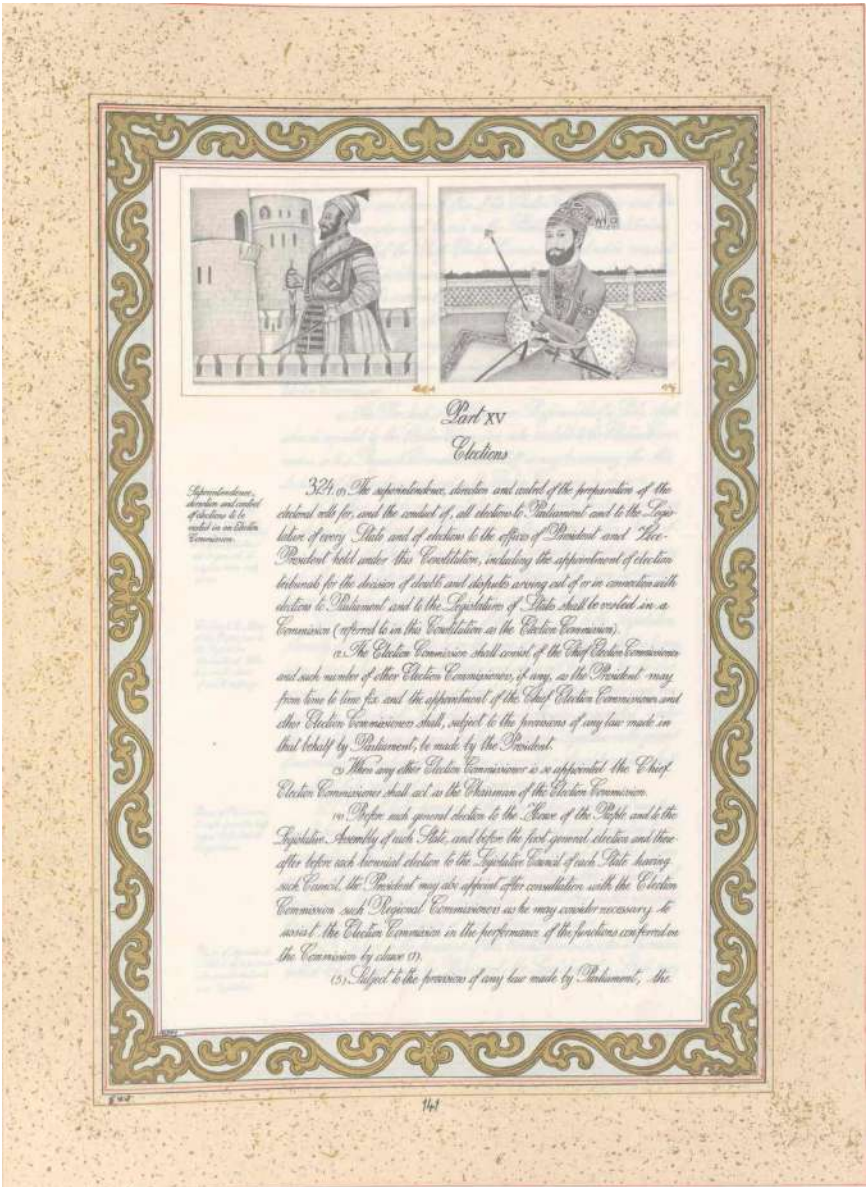 Part XV
Elections
Superintendence,
direction and control
of elections to be
vested in an Election
Commission.
324. (1) The superintendence, direction and control of the preparation of the
electoral rolls for, and the conduct of, all elections to Parliament and to the Legis-
lature of every State and of elections to the offices of President and Vice-
President held under this Constitution, including the appointment of election
tribunals for the decision of doubts and disputes arising out of or in connection with
elections to Parliament and to the Legislatures of States shall be vested in a
Commission (referred to in this Constitution as the Election Commission).
(2) The Election Commission shall consist of the Chief Election Commissioner
and such number of other Election Commissioners, if any, as the President may
from time to time fix and the appointment of the Chief Election Commissioner and
other Election Commissioners shall, subject to the provisions of any law made in
that behalf by Parliament, be made by the President.
(3) When any other Election Commissioner is so appointed the Chief
Election Commissioner shall act as the Chairman of the Election Commission.
(4) Before each general election to the House of the People and to the
Legislative Assembly of each State, and before the first general election and there
after before each biennial election to the Legislative Council of each State having
such Council, the President may also appoint after consultation with the Election
Commission such Regional Commissioners as he may consider necessary to
assist the Election Commission in the performance of the functions conferred on
the Commission by clause (1).
(5) Subject to the provisions of any law made by Parliament, the
141